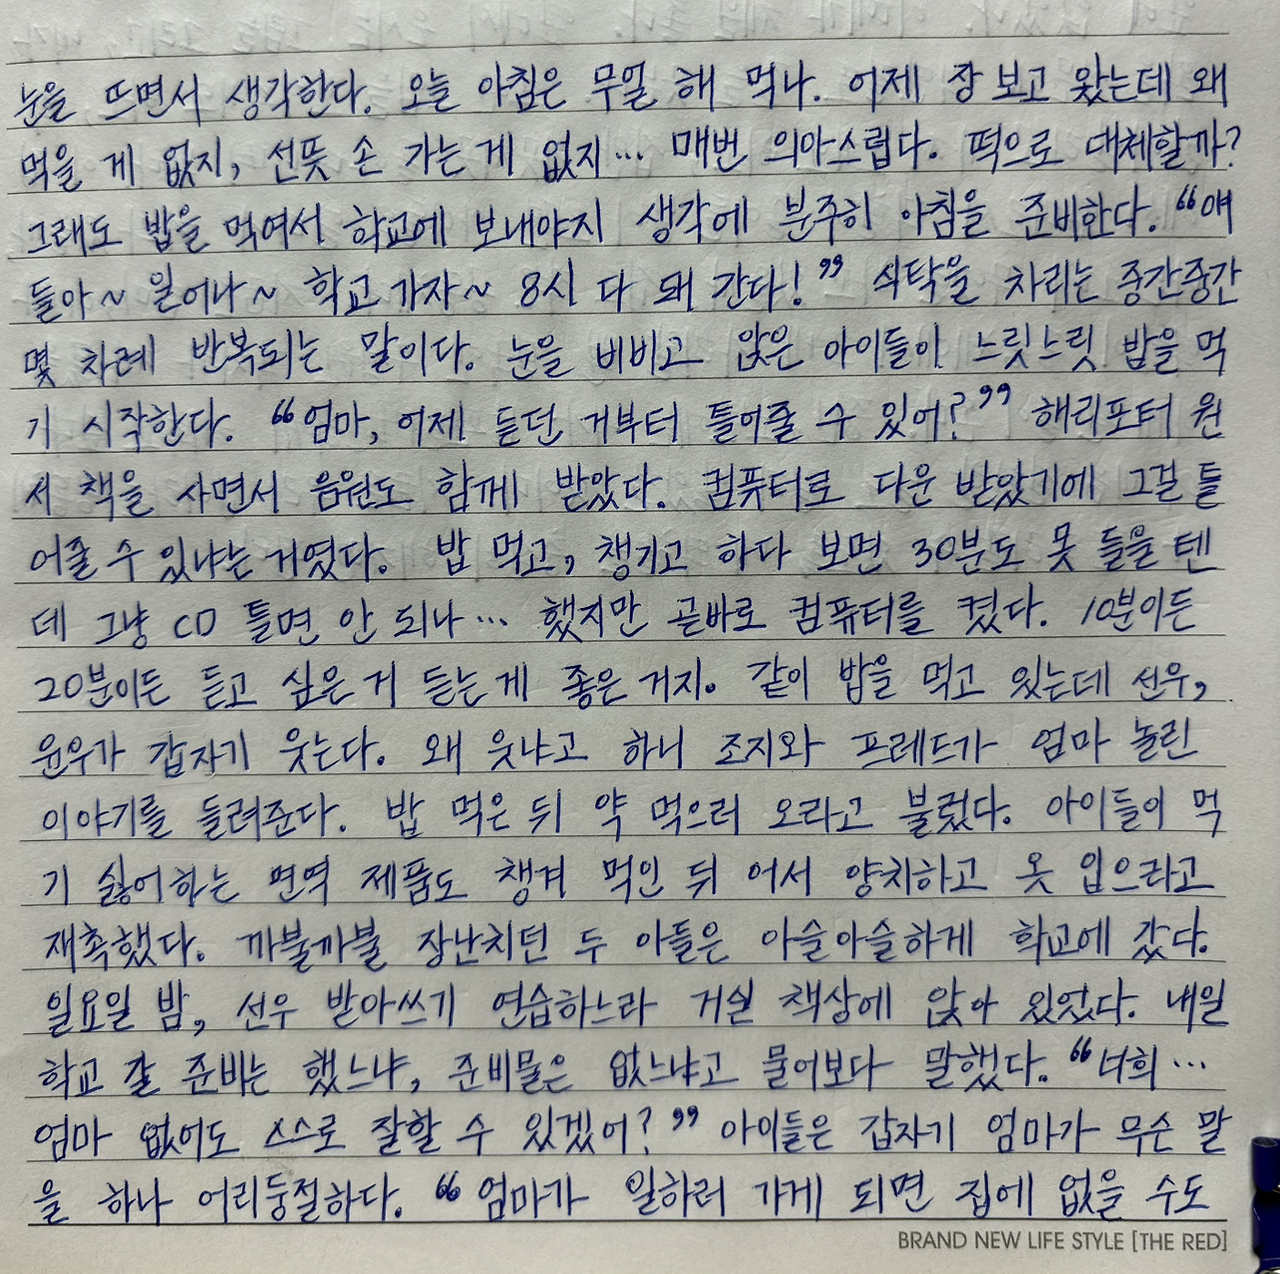 눈을 뜨면서 생각한다. 오늘 아침은 무얼 해 먹나. 어제 장 보고 왔는데 왜
먹을 게 없지, 선뜻 손 가는 게 없지… 매번 의아스럽다. 떡으로 대체할까?
그래도 밥을 먹여서 학교에 보내야지 생각에 분주히 아침을 준비한다. “얘
들아~ 일어나~ 학교 가자~ 8시 다 돼 간다!” 식탁을 차리는 중간중간
몇 차례 반복되는 말이다. 눈을 비비고 앉은 아이들이 느릿느릿 밥을 먹
기 시작한다. “엄마, 어제 듣던 거부터 틀어줄 수 있어?” 해리포터 원
서 책을 사면서 음원도 함께 받았다. 컴퓨터로 다운 받았기에 그걸 틀
어줄 수 있냐는 거였다. 밥 먹고, 챙기고 하다 보면 30분도 못 들을 텐
데 그냥 CD 틀면 안 되나… 했지만 곧바로 컴퓨터를 켰다. 10분이든
20분이든 듣고 싶은 거 듣는 게 좋은 거지. 같이 밥을 먹고 있는데 선우,
윤우가 갑자기 웃는다. 왜 웃냐고 하니 조지와 프레드가 엄마 놀린
이야기를 들려준다. 밥 먹은 뒤 약 먹으러 오라고 불렀다. 아이들이 먹
기 싫어하는 면역 제품도 챙겨 먹인 뒤 어서 양치하고 옷 입으라고
재촉했다. 까불까불 장난치던 두 아들은 아슬아슬하게 학교에 갔다.
일요일 밤, 선우 받아쓰기 연습하느라 거실 책상에 앉아 있었다. 내일
학교 갈 준비는 했느냐, 준비물은 없느냐고 물어보다 말했다. “너희…
엄마 없어도 스스로 잘할 수 있겠어?” 아이들은 갑자기 엄마가 무슨 말
을 하나 어리둥절하다. “엄마가 일하러 가게 되면 집에 없을 수도
BRAND NEW LIFE STYLE [THE RED]